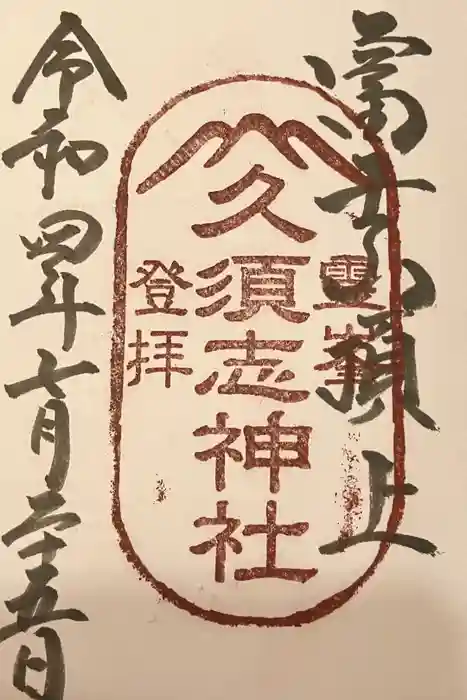 富士山頂上
霊峰
久須志神社
登拝
令和四年七月二十五日